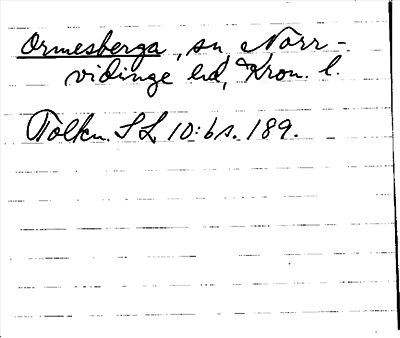 Ormesberga, sn Norr-
vidinge hd, Kron. l.
Tolkn. SL 10:6 s. 189.